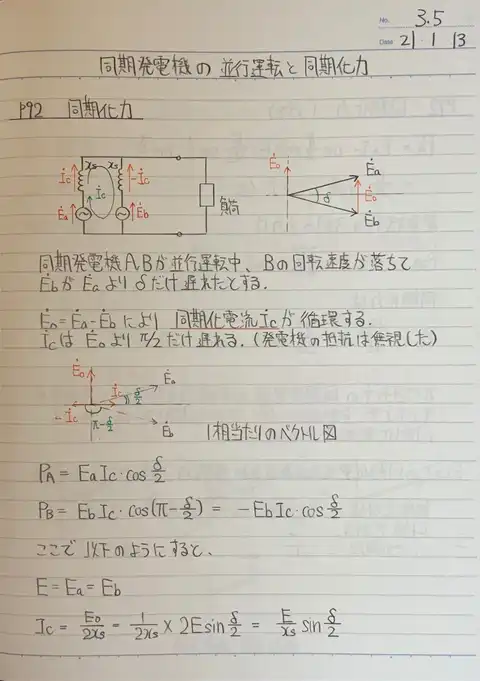 No. 3.5
Date 21・1・13
同期発電機の並行運転と同期化力
P92 同期化力
xs xs
İc İc -İc
Ėa Ėb 負荷
Ė0 Ėa
δ Ė0
Ėb
同期発電機A,Bが並行運転中、Bの回転速度が落ちて
ĖbがĖaよりδだけ遅れたとする.
Ė0=Ėa-Ėbにより 同期化電流İcが循環する.
İcはĖ0よりπ/2だけ遅れる.(発電機の抵抗は無視した)
Ė0 İc δ/2 Ėa
-İc
π-δ/2 Ėb
1相当たりのベクトル図
PA = EaIc・cos δ/2
PB = EbIc・cos(π-δ/2) = -EbIc・cos δ/2
ここで 以下のようにすると、
E = Ea = Eb
Ic = E0/2xs = 1/2xs × 2E sin δ/2 = E/xs sin δ/2